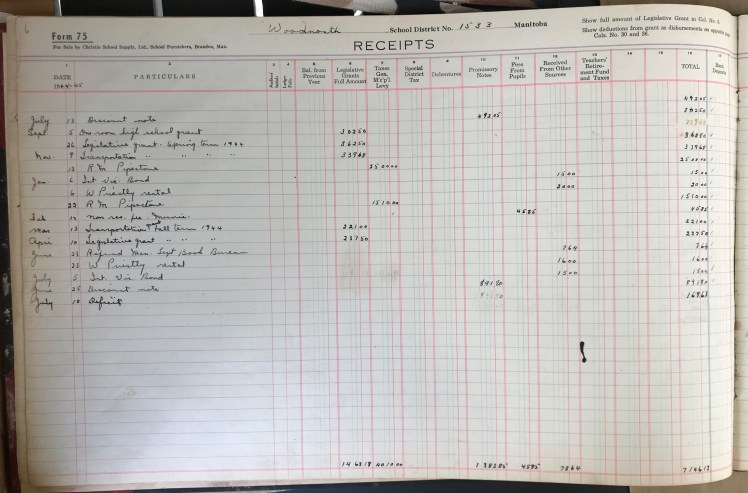 6
Form 75
For Sale by Christie School Supply, Ltd., School Furnishers, Brandon, Man.
Woodnorth School District No. 1533 Manitoba
Show full amount of Legislative Grant in Col. 6.
Show deductions from grant as disbursements on opposite page
Cols. No. 30 and 36.
RECEIPTS
1 2 3 4 5 6 7 8 9 10 11 12 13 14
DATE PARTICULARS Bal. from Previous Year Legislative Grants Full Amount Taxes Gen. M'c'p'l Levy Special District Tax Debentures Promissory Notes Fees From Pupils Received From Other Sources Teachers' Retirement Fund and Taxes TOTAL Bank Deposits
1944-45
49205
July 13 Discount note 49205
Sept 5 One room high school grant 30250
26 Legislative grant - Spring term 1944 86250
Nov. 9 Transportation " " " 33968 33968
13 R M Pipestone 250000 250000
Jan. 6 Int Vic. Bond 1500 1500
6 W Priestly rental 2000 2000
22 R M Pipestone 151000 151000
Feb 12 non res. fee 4585 4585
Mar 13 Transportation Fall term 1944 22100 22100
April 10 Legislative grant " " " 23750 23750
June 23 Refund Man. Text Book Bureau 764 764
23 W Priestly rental 1600 1600
July 5 Int. Vic Bond 1500 1500
June 25 Discount note 89180 89180
July 18 Deficit
4585